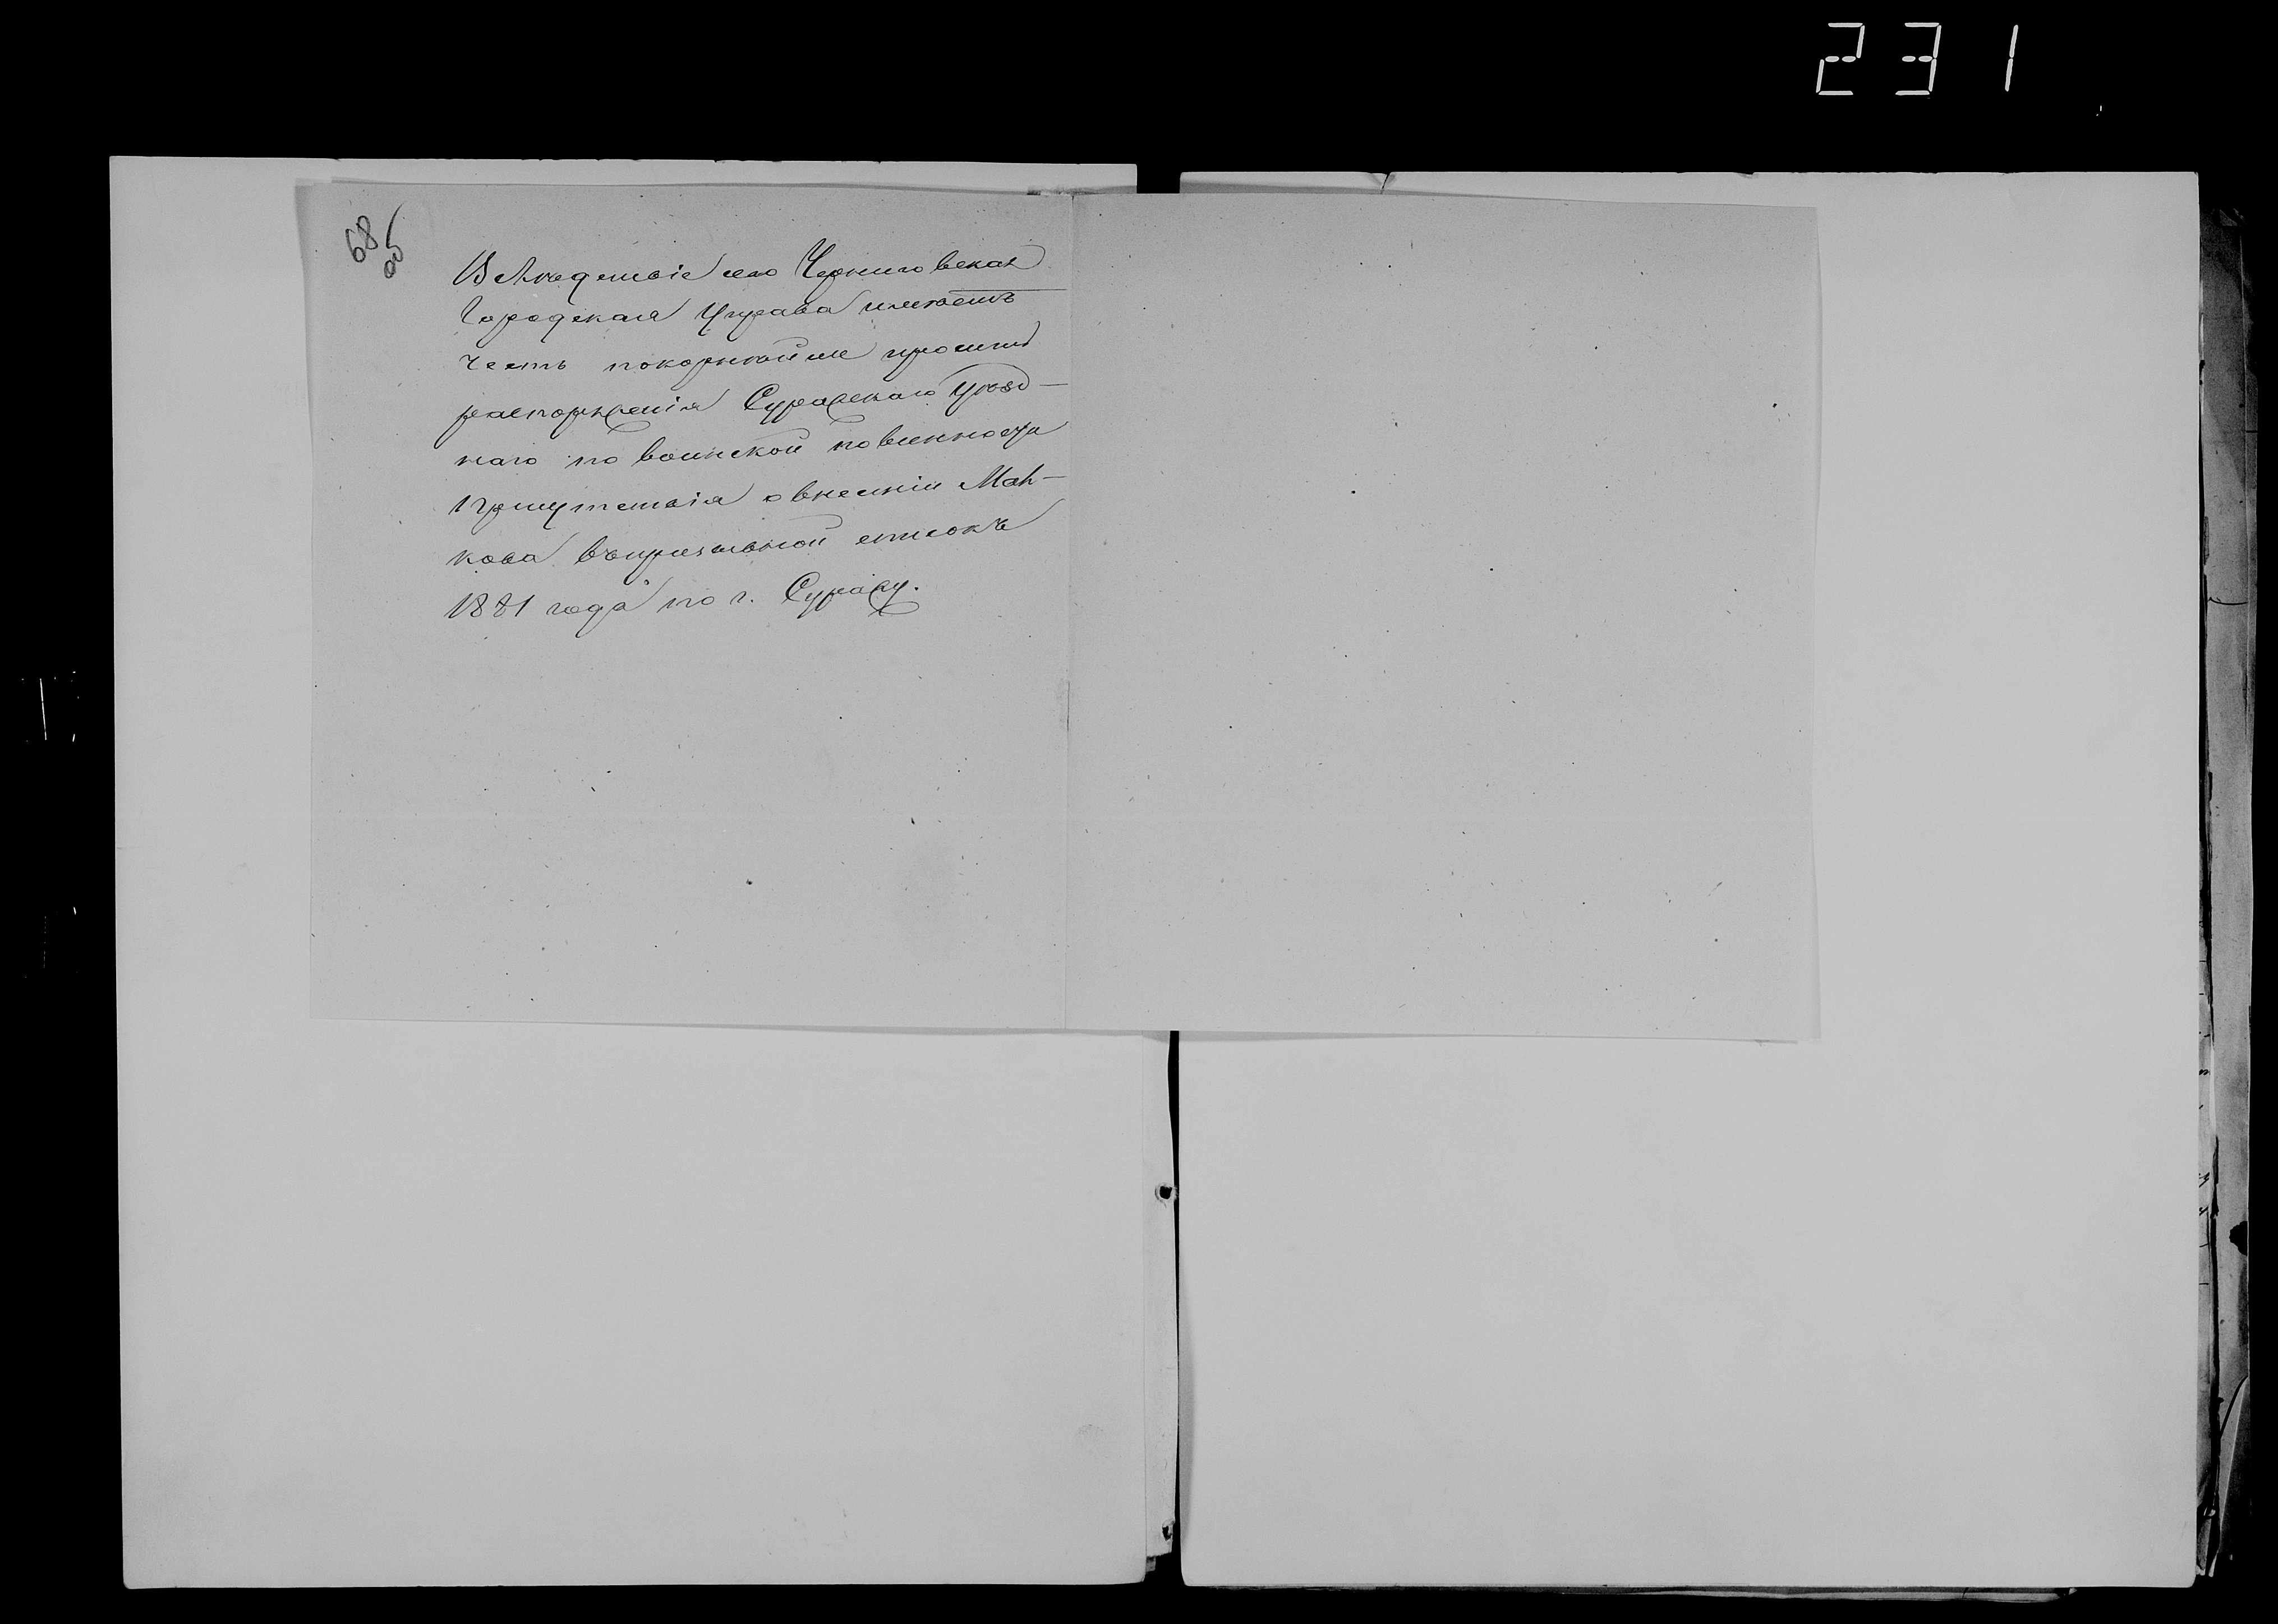 231
68
об
Вследствіе сего Черниговская
Городская Управа имѣетъ
честь покорнѣйше просить
распоряженія Суражскаго Уѣзд-
наго по воинской повинности
Присутствія о внесеніи Мань-
кова въ призывной списокъ
1881 года по г. Суражу.